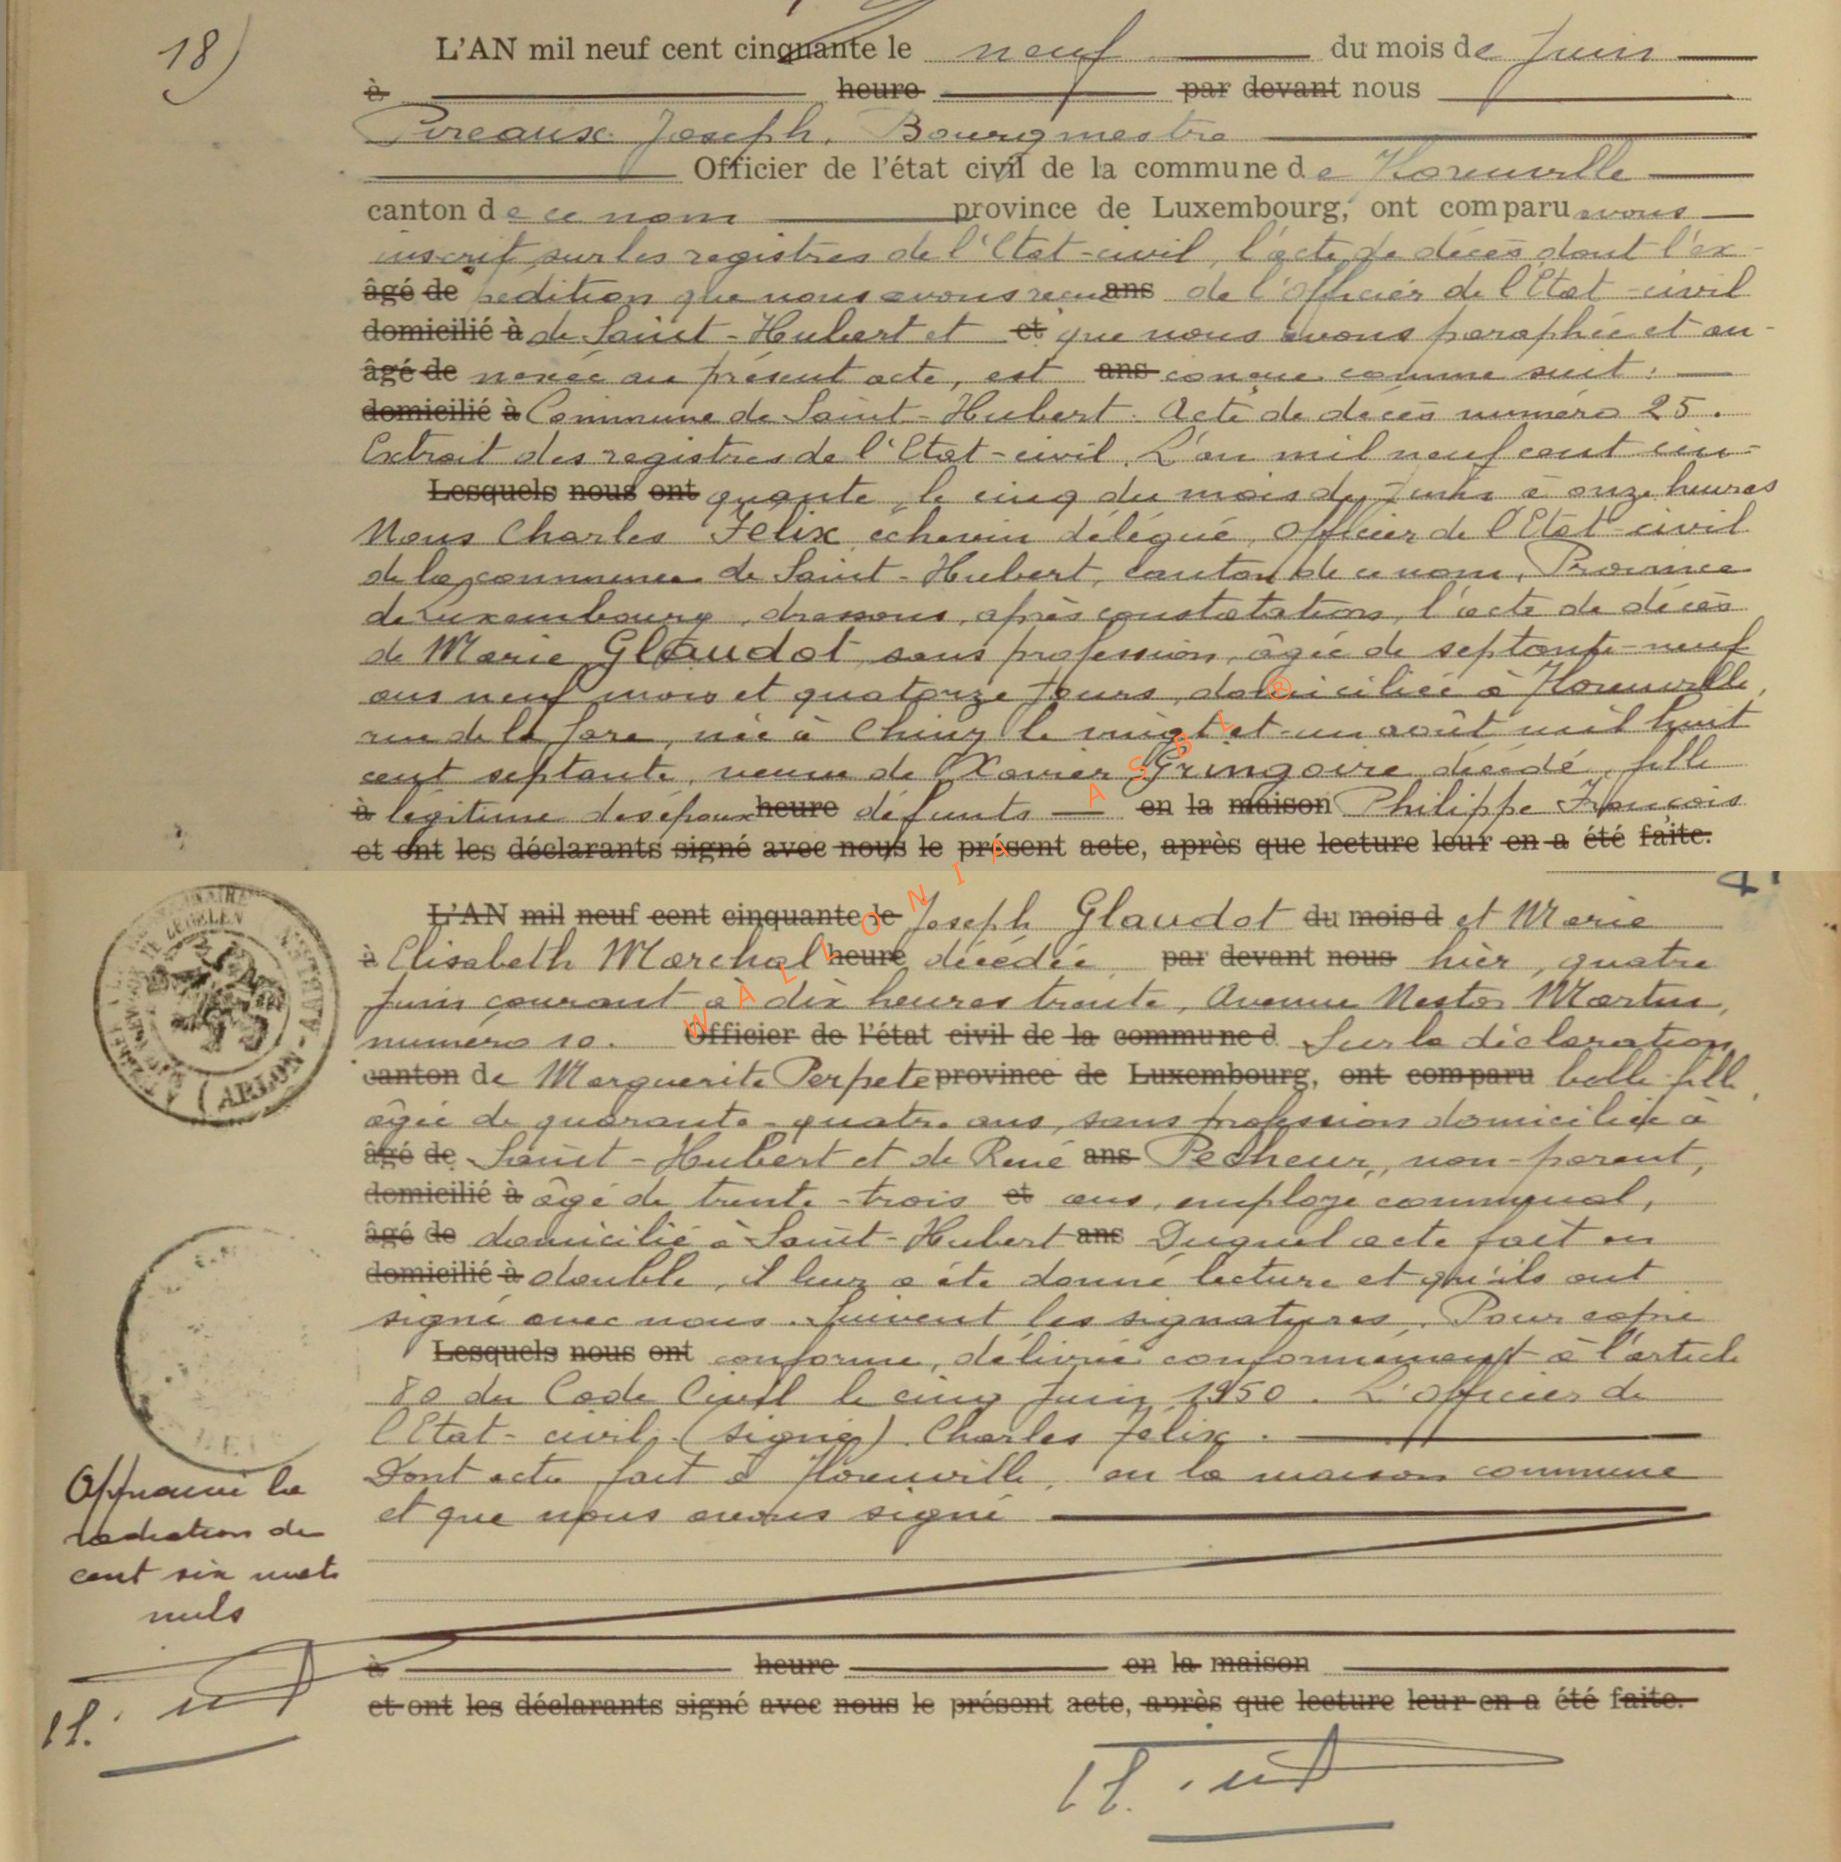 18)
L'AN mil neuf cent cinquante le neuf du mois de Juin
à heure par devant nous
Pireaux Joseph, Bourgmestre
Officier de l'état civil de la commune de Florenville
canton de ce nom province de Luxembourg, ont comparu avons
inscrit sur les registres de l'Etat-civil, l'acte de décès dont l'ex-
âgé de pédition que nous avons reçue ans de l'Officier de l'Etat-civil
domicilié à de Saint-Hubert et et que nous avons paraphée et an-
âgé de nexée au présent acte, est ans conçue comme suit :
domicilié à Commune de Saint-Hubert. Acte de décès numéro 25.
Extrait des registres de l'Etat-civil. L'an mil neuf cent cin-
Lesquels nous ont quante, le cinq du mois de Juin à onze heures
Nous Charles Felix échevin délégué, Officier de l'Etat-civil
de la commune de Saint-Hubert, canton de ce nom, Province
de Luxembourg, dressons, après constatation, l'acte de décès
de Marie Glaudot, sans profession, âgée de septante-neuf
ans neuf mois et quatorze jours, domiciliée à Florenville,
rue de la gare, née à Chiny le vingt et un août mil huit
cent septante, veuve de Xavier Gringoire décédé, fille
à légitime des époux heure défunts en la maison Philippe François
et ont les déclarants signé avec nous le présent acte, après que lecture leur en a été faite.
L'AN mil neuf cent cinquante le Joseph Glaudot du mois d et Marie
à Elisabeth Marchal heure décédée par devant nous hier, quatre
Juin courant à dix heures trente, Avenue Nestor Martin,
numéro 10. Officier de l'état civil de la commune d Sur la déclaration
canton de Marguerite Perpete province de Luxembourg, ont comparu belle-fille,
âgée de quarante-quatre ans, sans profession domiciliée à
âgé de Saint-Hubert et de René ans Pecheur, non-parent,
domicilié à âgé de trente-trois et ans, employé communal,
âgé de domicilié à Saint-Hubert ans Duquel acte fait en
domicilié à double, il leur a été donné lecture et qu'ils ont
signé avec nous. Suivent les signatures. Pour copie
Lesquels nous ont conforme, délivrée conformément à l'article
80 du Code Civil le cinq Juin 1950. L'officier de
l'Etat-civil, (signé) Charles Felix.
Dont acte fait à Florenville, en la maison commune
et que nous avons signé
Approuvé la
radiation de
cent six mots
nuls
à heure en la maison
et ont les déclarants signé avec nous le présent acte, après que lecture leur en a été faite.
(ARLON)
WALLONIA ASBL ®